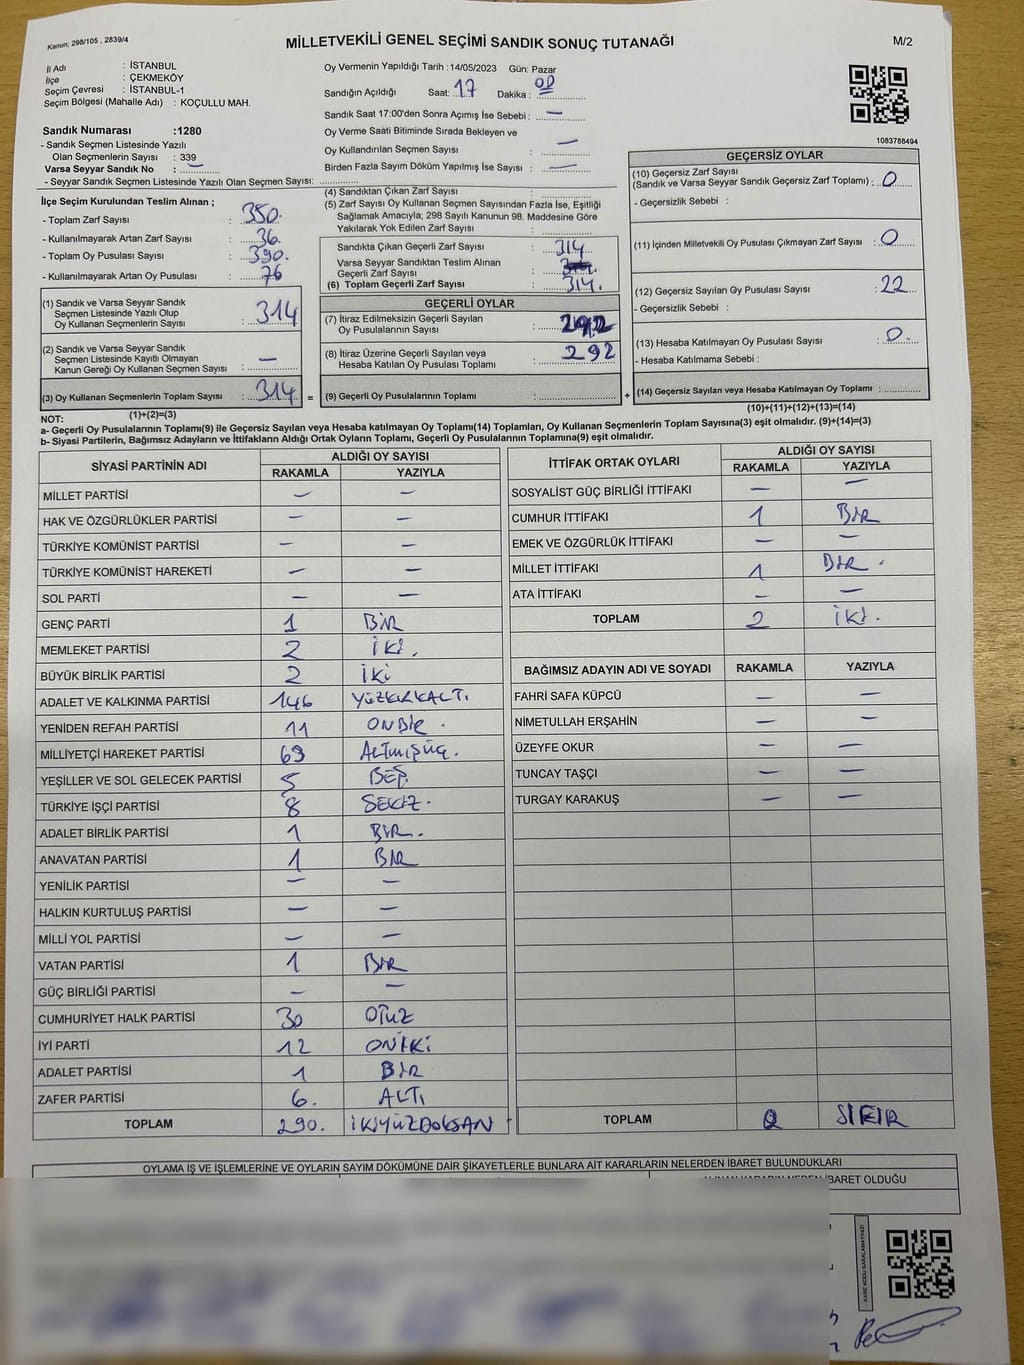 Kanun: 298/105 , 2839/4
MİLLETVEKİLİ GENEL SEÇİMİ SANDIK SONUÇ TUTANAĞI
M/2
İl Adı : İSTANBUL
İlçe : ÇEKMEKÖY
Seçim Çevresi : İSTANBUL-1
Seçim Bölgesi (Mahalle Adı) : KOÇULLU MAH.
Sandık Numarası :1280
- Sandık Seçmen Listesinde Yazılı
Olan Seçmenlerin Sayısı : 339
Varsa Seyyar Sandık No : —
- Seyyar Sandık Seçmen Listesinde Yazılı Olan Seçmen Sayısı:
Oy Vermenin Yapıldığı Tarih :14/05/2023 Gün: Pazar
Sandığın Açıldığı Saat: 17 Dakika : 00
Sandık Saat 17:00'den Sonra Açımış İse Sebebi : —
Oy Verme Saati Bitiminde Sırada Bekleyen ve
Oy Kullandırılan Seçmen Sayısı : —
Birden Fazla Sayım Döküm Yapılmış İse Sayısı : —
1083788494
İlçe Seçim Kurulundan Teslim Alınan ;
- Toplam Zarf Sayısı : 350.
- Kullanılmayarak Artan Zarf Sayısı : 36.
- Toplam Oy Pusulası Sayısı : 390.
- Kullanılmayarak Artan Oy Pusulası : 76
(1) Sandık ve Varsa Seyyar Sandık
Seçmen Listesinde Yazılı Olup
Oy Kullanan Seçmenlerin Sayısı : 314
(2) Sandık ve Varsa Seyyar Sandık
Seçmen Listesinde Kayıtlı Olmayan
Kanun Gereği Oy Kullanan Seçmen Sayısı : —
(3) Oy Kullanan Seçmenlerin Toplam Sayısı : 314 =
(4) Sandıktan Çıkan Zarf Sayısı :
(5) Zarf Sayısı Oy Kullanan Seçmen Sayısından Fazla İse, Eşitliği
Sağlamak Amacıyla; 298 Sayılı Kanunun 98. Maddesine Göre
Yakılarak Yok Edilen Zarf Sayısı :
Sandıkta Çıkan Geçerli Zarf Sayısı : 314
Varsa Seyyar Sandıktan Teslim Alınan
Geçerli Zarf Sayısı :
(6) Toplam Geçerli Zarf Sayısı : 314.
GEÇERLİ OYLAR
(7) İtiraz Edilmeksizin Geçerli Sayılan
Oy Pusulalarının Sayısı : 292
(8) İtiraz Üzerine Geçerli Sayılan veya
Hesaba Katılan Oy Pusulası Toplamı : 292
(9) Geçerli Oy Pusulalarının Toplamı : +
GEÇERSİZ OYLAR
(10) Geçersiz Zarf Sayısı
(Sandık ve Varsa Seyyar Sandık Geçersiz Zarf Toplamı) : 0
- Geçersizlik Sebebi :
(11) İçinden Milletvekili Oy Pusulası Çıkmayan Zarf Sayısı : 0
(12) Geçersiz Sayılan Oy Pusulası Sayısı : 22
- Geçersizlik Sebebi :
(13) Hesaba Katılmayan Oy Pusulası Sayısı : 0.
- Hesaba Katılmama Sebebi :
(14) Geçersiz Sayılan veya Hesaba Katılmayan Oy Toplamı :
(1)+(2)=(3)
(10)+(11)+(12)+(13)=(14)
NOT:
a- Geçerli Oy Pusulalarının Toplamı(9) ile Geçersiz Sayılan veya Hesaba katılmayan Oy Toplamı(14) Toplamları, Oy Kullanan Seçmenlerin Toplam Sayısına(3) eşit olmalıdır. (9)+(14)=(3)
b- Siyasi Partilerin, Bağımsız Adayların ve İttifakların Aldığı Ortak Oyların Toplamı, Geçerli Oy Pusulalarının Toplamına(9) eşit olmalıdır.
SİYASİ PARTİNİN ADI ALDIĞI OY SAYISI
RAKAMLA YAZIYLA
MİLLET PARTİSİ — —
HAK VE ÖZGÜRLÜKLER PARTİSİ — —
TÜRKİYE KOMÜNİST PARTİSİ — —
TÜRKİYE KOMÜNİST HAREKETİ — —
SOL PARTİ — —
GENÇ PARTİ 1 BİR
MEMLEKET PARTİSİ 2 İKİ.
BÜYÜK BİRLİK PARTİSİ 2 İKİ
ADALET VE KALKINMA PARTİSİ 146 YÜZKIRKALTI
YENİDEN REFAH PARTİSİ 11 ONBİR.
MİLLİYETÇİ HAREKET PARTİSİ 63 ALTMIŞÜÇ.
YEŞİLLER VE SOL GELECEK PARTİSİ 5 BEŞ
TÜRKİYE İŞÇİ PARTİSİ 8 SEKİZ.
ADALET BİRLİK PARTİSİ 1 BİR.
ANAVATAN PARTİSİ 1 BİR
YENİLİK PARTİSİ — —
HALKIN KURTULUŞ PARTİSİ — —
MİLLİ YOL PARTİSİ — —
VATAN PARTİSİ 1 BİR
GÜÇ BİRLİĞİ PARTİSİ — —
CUMHURİYET HALK PARTİSİ 30 OTUZ
İYİ PARTİ 12 ONİKİ
ADALET PARTİSİ 1 BİR
ZAFER PARTİSİ 6. ALTI
TOPLAM 290. İKİYÜZDOKSAN
İTTİFAK ORTAK OYLARI ALDIĞI OY SAYISI
RAKAMLA YAZIYLA
SOSYALİST GÜÇ BİRLİĞİ İTTİFAKI — —
CUMHUR İTTİFAKI 1 BİR
EMEK VE ÖZGÜRLÜK İTTİFAKI — —
MİLLET İTTİFAKI 1 BİR.
ATA İTTİFAKI — —
TOPLAM 2 İKİ.
BAĞIMSIZ ADAYIN ADI VE SOYADI RAKAMLA YAZIYLA
FAHRİ SAFA KÜPCÜ — —
NİMETULLAH ERŞAHİN — —
ÜZEYFE OKUR — —
TUNCAY TAŞÇI — —
TURGAY KARAKUŞ — —
TOPLAM 0 SIFIR
OYLAMA İŞ VE İŞLEMLERİNE VE OYLARIN SAYIM DÖKÜMÜNE DAİR ŞİKAYETLERLE BUNLARA AİT KARARLARIN NELERDEN İBARET BULUNDUKLARI
İBARET OLDUĞU
KARE KODU KARALAMAYINIZ!